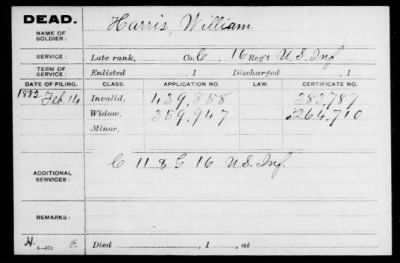 DEAD.
NAME OF SOLDIER: Harris, William
SERVICE: Late rank, Co. C, 16 Reg't U.S. Inf
TERM OF SERVICE: Enlisted , 1 Discharged , 1
DATE OF FILING. CLASS. APPLICATION NO. LAW. CERTIFICATE NO.
1882 Feb. 14 Invalid, 439,858 283,787
Widow, 359,947 264,710
Minor,
ADDITIONAL SERVICES: C 11 & G 16 U.S. Inf.
REMARKS:
Died , 1 , at